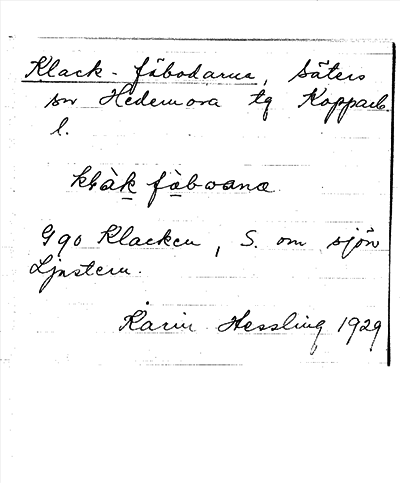 Klack-fäbodarna, Säters
sn Hedemora tg Kopparb.
l.
klàk fàboana
G 90 Klacken, S. om sjön
Ljustern.
Karin Hessling 1929